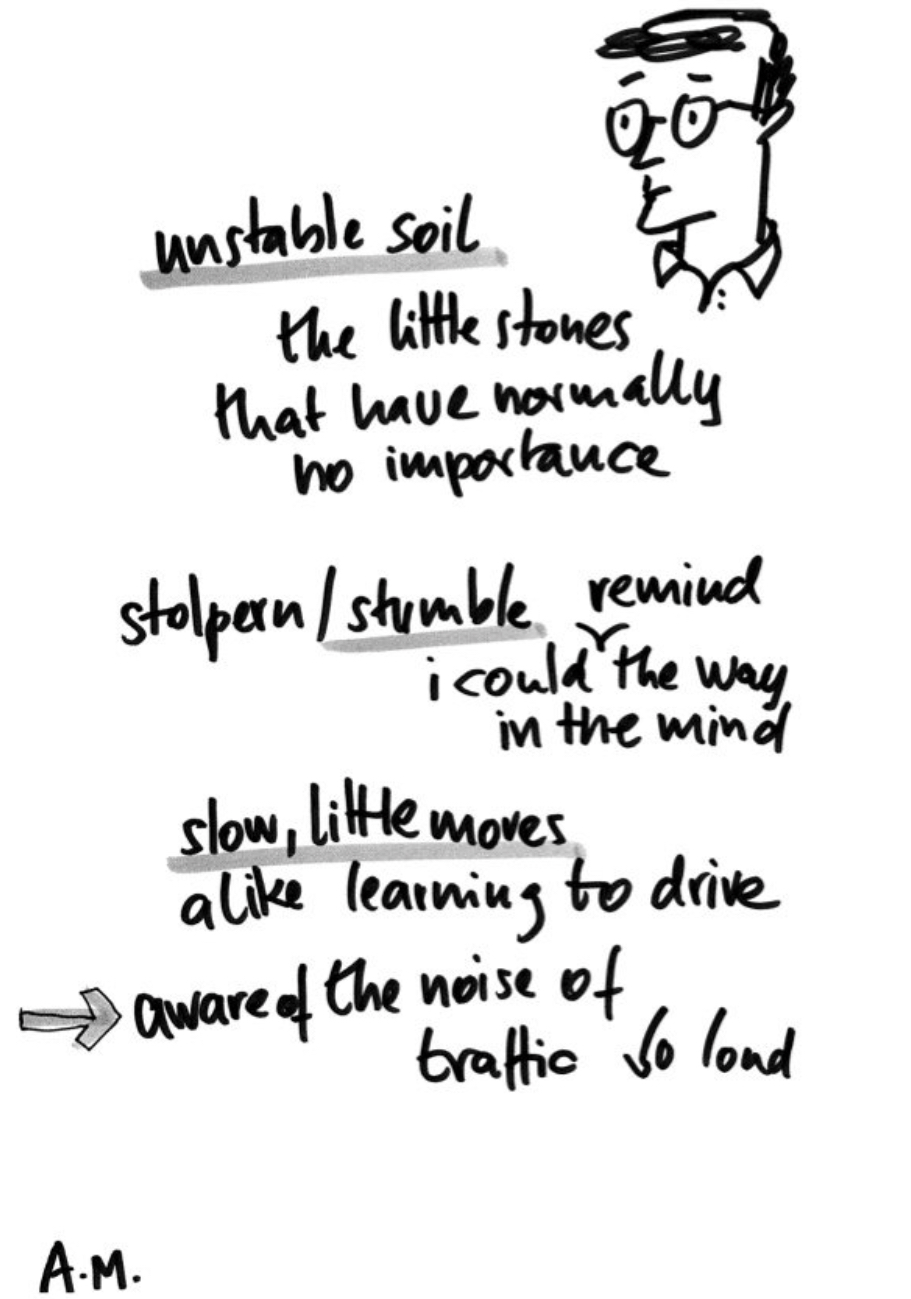 unstable soil
the little stones
that have normally
no importance
stolpern / stumble
remind
i could the way
in the mind
slow, little moves
alike learning to drive
→ aware of the noise of
traffic so loud
A.M.